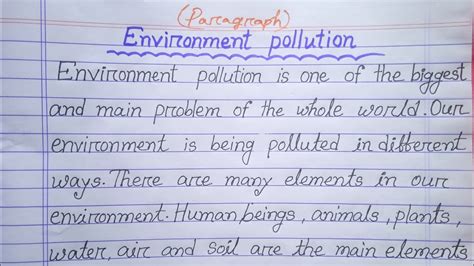 (Paragraph)
Environment pollution
Environment pollution is one of the biggest
and main problem of the whole world. Our
environment is being polluted in different
ways. There are many elements in our
environment. Human beings, animals, plants,
water, air and soil are the main elements